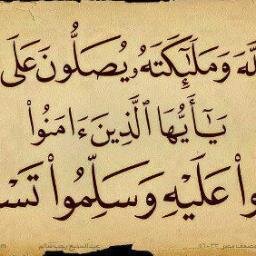 لَّهَ وَمَلَٰٓئِكَتَهُۥ يُصَلُّونَ عَلَى
يَٰٓأَيُّهَا ٱلَّذِينَ ءَامَنُوا۟
وا۟ عَلَيْهِ وَسَلِّمُوا۟ تَسْ